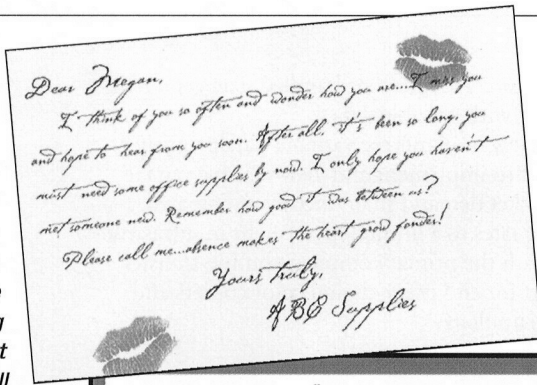 Dear Megan,
I think of you so often and wonder how you are...I miss you
and hope to hear from you soon. After all, it's been so long, you
must need some office supplies by now. I only hope you haven't
met someone new. Remember how good it was between us?
Please call me...absence makes the heart grow fonder!
Yours truly,
ABC Supplies